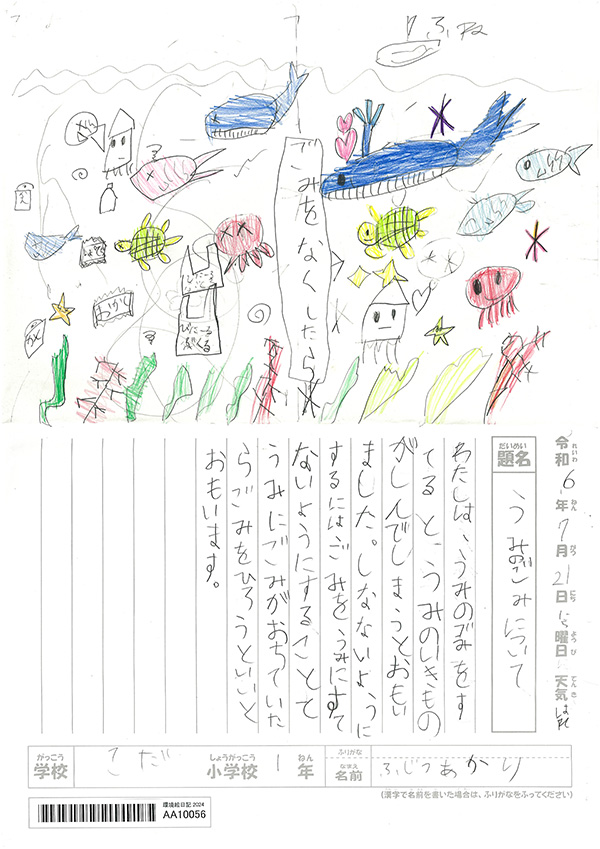 ふね
ごみをなくしたら
びにーる
ぶくろ
令和6年7月21日にち曜日天気はれ
れいわ ねん がつ にち ようび てんき
だいめい
題名
うみのごみについて
わたしは、うみのごみをす
てると、うみのいきもの
がしんでしまうとおもい
ました。しなないように
するにはごみをうみにすて
ないようにすることと
うみにごみがおちていた
らごみをひろうといいと
おもいます。
がっこう
学校
こだ
しょうがっこう
小学校
1
ねん
年
ふりがな
なまえ
名前
ふじつあかり
(漢字で名前を書いた場合は、ふりがなをふってください)
環境絵日記2024
AA10056